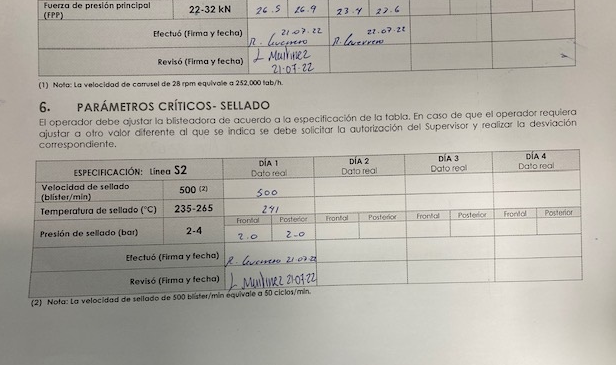 Fuerza de presión principal (FPP) 22-32 kN 26.5 26.9 23.4 22.6
Efectuó (Firma y fecha) R. Guerrero 21-07-22 R. Guerrero 22-07-22
Revisó (Firma y fecha) L Martinez 21-07-22
(1) Nota: La velocidad de carrusel de 28 rpm equivale a 252,000 tab/h.
6. PARÁMETROS CRÍTICOS- SELLADO
El operador debe ajustar la blisteadora de acuerdo a la especificación de la tabla. En caso de que el operador requiera
ajustar a otro valor diferente al que se indica se debe solicitar la autorización del Supervisor y realizar la desviación
correspondiente.
ESPECIFICACIÓN: Línea S2 DÍA 1 Dato real DÍA 2 Dato real DÍA 3 Dato real DÍA 4 Dato real
Velocidad de sellado (blíster/min) 500 (2) 500
Temperatura de sellado (°C) 235-265 241
Frontal Posterior Frontal Posterior Frontal Posterior Frontal Posterior
Presión de sellado (bar) 2-4 2.0 2.0
Efectuó (Firma y fecha) R. Guerrero 21-07-22
Revisó (Firma y fecha) L Martinez 21-07-22
(2) Nota: La velocidad de sellado de 500 blíster/min equivale a 50 ciclos/min.